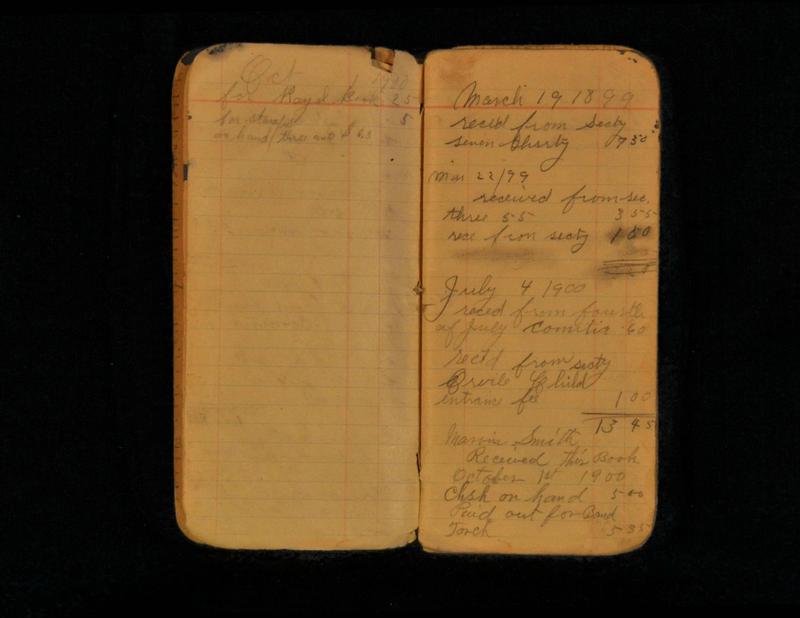 Oct 1900
for Rayd Book 25
for stamps 5
on hand three and
March 19 1899
recd from secty
seven thirty 7 30
Mar 22/99
received from sec.
three 55 3 55
rece from secty 1 50
July 4 1900
reced from fourth
of July Comitie 60
rect'd from secty
Orvile Child
entrance fee 1 00
13 45
Marvin Smith
Received this Book
October 1st 1900
Chsh on hand 5 00
Paid out for Band
Torch 5 35